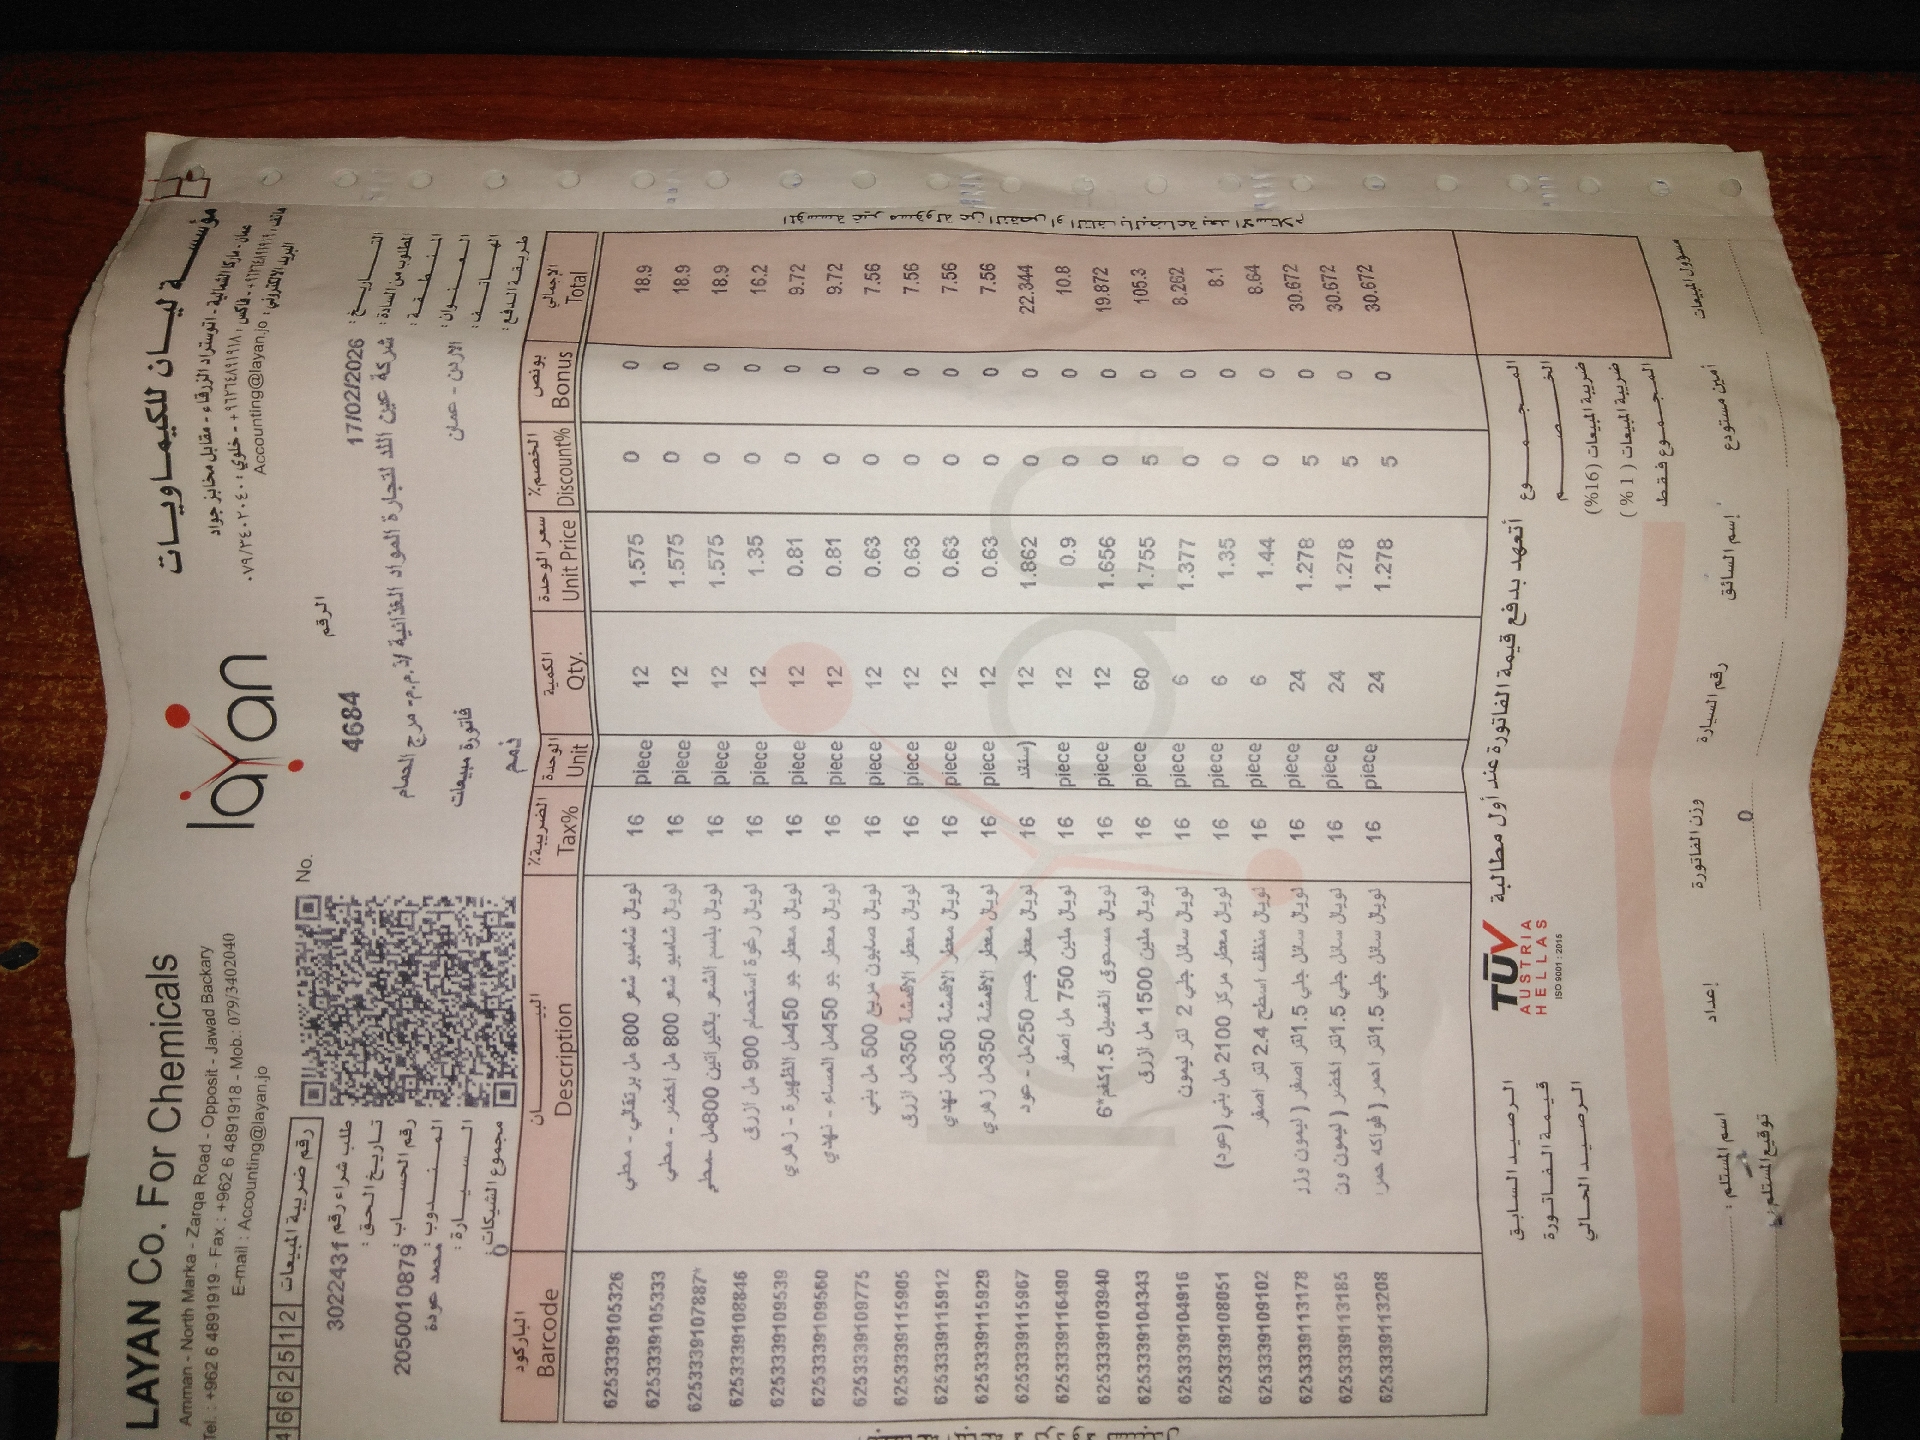 LAYAN Co. For Chemicals
Amman - North Marka - Zarqa Road - Opposit - Jawad Backary
Tel. : +962 6 4891919 - Fax.: +962 6 4891918 - Mob.: 079/3402040
E-mail : Accounting@layan.jo
layan
مؤسسة ليان للكيماويات
عمان - ماركا الشمالية - اتوستراد الزرقاء - مقابل مخابز جواد
Accounting@layan.jo : البريد الالكتروني
رقم ضريبة المبيعات 4662512
No. 4684 الرقم
التاريخ : 17/02/2026
المطلوب من السادة : شركة عين اللد لتجارة المواد الغذائية ذ.م.م- مرج الحمام
المنطقة :
العنوان : الاردن - عمان
الهاتف :
طريقة الدفع :
فاتورة مبيعات
ذمم
طلب شراء رقم 30224431
تاريخ الحق :
رقم الحساب : 2050010879
المندوب : محمد عودة
السيارة :
مجموع الشيكات : 0
الباركود البيان الضريبة% الوحدة الكمية سعر الوحدة الخصم% بونص الإجمالي
Barcode Description Tax% Unit Qty. Unit Price Discount% Bonus Total
6253339105326 لويال شامبو شعر 800 مل برتقالي - مطي 16 piece 12 1.575 0 0 18.9
6253339105333 لويال شامبو شعر 800 مل اخضر - مطي 16 piece 12 1.575 0 0 18.9
6253339107887* لويال بلسم الشعر بالكيراتين 800مل -مطي 16 piece 12 1.575 0 0 18.9
6253339108846 لويال رغوة استحمام 900 مل ازرق 16 piece 12 1.35 0 0 16.2
6253339109539 لويال معطر جو 450مل الظهيرة - زهري 16 piece 12 0.81 0 0 9.72
6253339109560 لويال معطر جو 450مل المساء - نهدي 16 piece 12 0.81 0 0 9.72
6253339109775 لويال صابون مربع 500 مل بني 16 piece 12 0.63 0 0 7.56
6253339115905 لويال معطر الاقمشة 350مل ازرق 16 piece 12 0.63 0 0 7.56
6253339115912 لويال معطر الاقمشة 350مل نهدي 16 piece 12 0.63 0 0 7.56
6253339115929 لويال معطر الاقمشة 350مل زهري 16 piece 12 0.63 0 0 7.56
6253339115967 لويال معطر جسم 250مل - عود 16 12 1.862 0 0 22.344
6253339116490 لويال ملين 750 مل اصفر 16 piece 12 0.9 0 0 10.8
6253339103940 لويال مسحوق الغسيل 1.5كغم*6 16 piece 12 1.656 0 0 19.872
6253339104343 لويال ملين 1500 مل ازرق 16 piece 60 1.755 5 0 105.3
6253339104916 لويال سائل جلي 2 لتر ليمون 16 piece 6 1.377 0 0 8.262
6253339108051 لويال معطر مركز 2100 مل بني (عود) 16 piece 6 1.35 0 0 8.1
6253339109102 لويال منظف اسطح 2.4 لتر اصفر 16 piece 6 1.44 0 0 8.64
6253339113178 لويال سائل جلي 1.5لتر اصفر ( ليمون وزز 16 piece 24 1.278 5 0 30.672
6253339113185 لويال سائل جلي 1.5لتر اخضر ( ليمون ون 16 piece 24 1.278 5 0 30.672
6253339113208 لويال سائل جلي 1.5لتر احمر ( فواكه حمرا 16 piece 24 1.278 5 0 30.672
المؤسسة غير مسؤولة عن النقص او التلف بالبضاعة بعد الاستلام
TÜV
AUSTRIA
HELLAS
ISO 9001 : 2015
أتعهد بدفع قيمة الفاتورة عند أول مطالبة
المجموع
الخصم
ضريبة المبيعات (16%)
ضريبة المبيعات (1%)
المجموع فقط
الرصيد السابق
قيمة الفاتورة
الرصيد الحالي
إعداد
وزن الفاتورة
0
رقم السيارة
إسم السائق
أمين مستودع
مسؤول المبيعات
اسم المستلم :
توقيع المستلم :